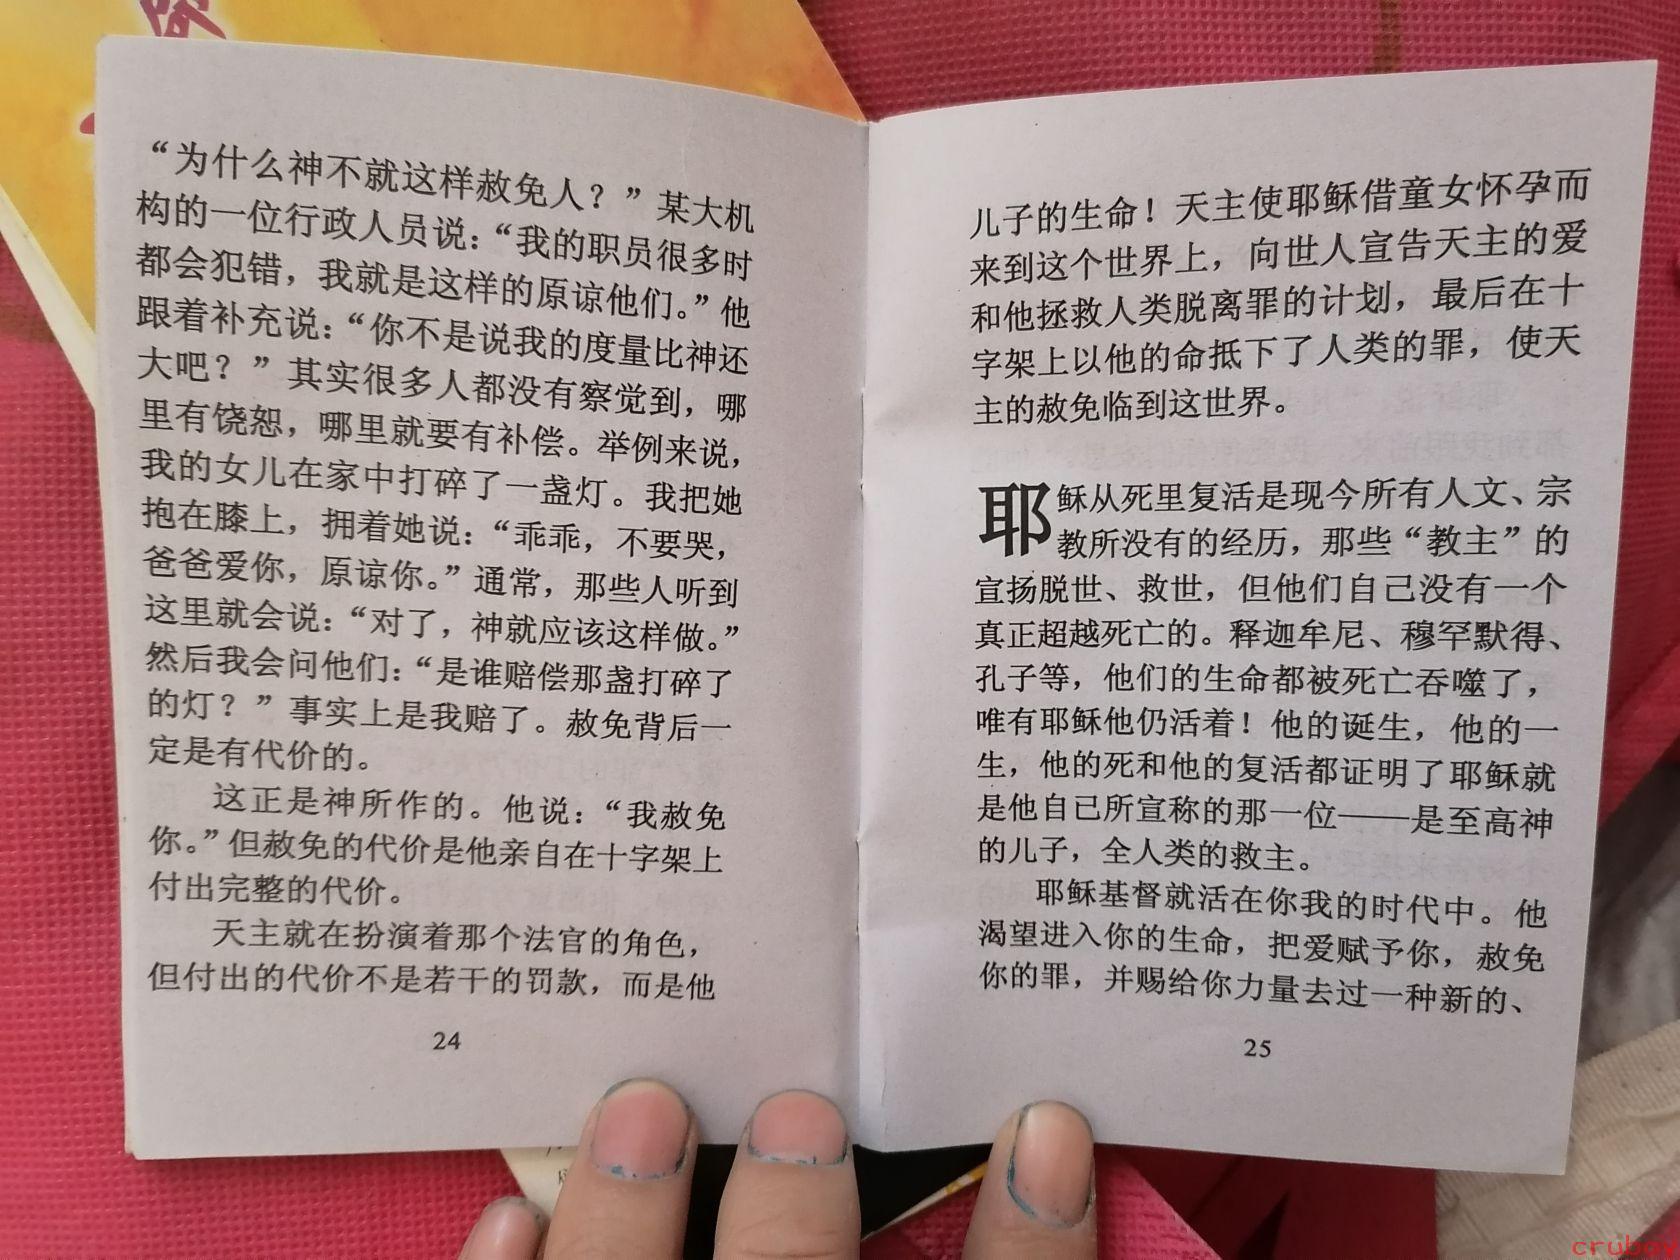 “为什么神不就这样赦免人？”某大机
构的一位行政人员说：“我的职员很多时
都会犯错，我就是这样的原谅他们。”他
跟着补充说：“你不是说我的度量比神还
大吧？”其实很多人都没有察觉到，哪
里有饶恕，哪里就要有补偿。举例来说，
我的女儿在家中打碎了一盏灯。我把她
抱在膝上，拥着她说：“乖乖，不要哭，
爸爸爱你，原谅你。”通常，那些人听到
这里就会说：“对了，神就应该这样做。”
然后我会问他们：“是谁赔偿那盏打碎了
的灯？”事实上是我赔了。赦免背后一
定是有代价的。
这正是神所作的。他说：“我赦免
你。”但赦免的代价是他亲自在十字架上
付出完整的代价。
天主就在扮演着那个法官的角色，
但付出的代价不是若干的罚款，而是他
24
儿子的生命！天主使耶稣借童女怀孕而
来到这个世界上，向世人宣告天主的爱
和他拯救人类脱离罪的计划，最后在十
字架上以他的命抵下了人类的罪，使天
主的赦免临到这世界。
耶稣从死里复活是现今所有人文、宗
教所没有的经历，那些“教主”的
宣扬脱世、救世，但他们自己没有一个
真正超越死亡的。释迦牟尼、穆罕默得、
孔子等，他们的生命都被死亡吞噬了，
唯有耶稣他仍活着！他的诞生，他的一
生，他的死和他的复活都证明了耶稣就
是他自己所宣称的那一位——是至高神
的儿子，全人类的救主。
耶稣基督就活在你我的时代中。他
渴望进入你的生命，把爱赋予你，赦免
你的罪，并赐给你力量去过一种新的、
25